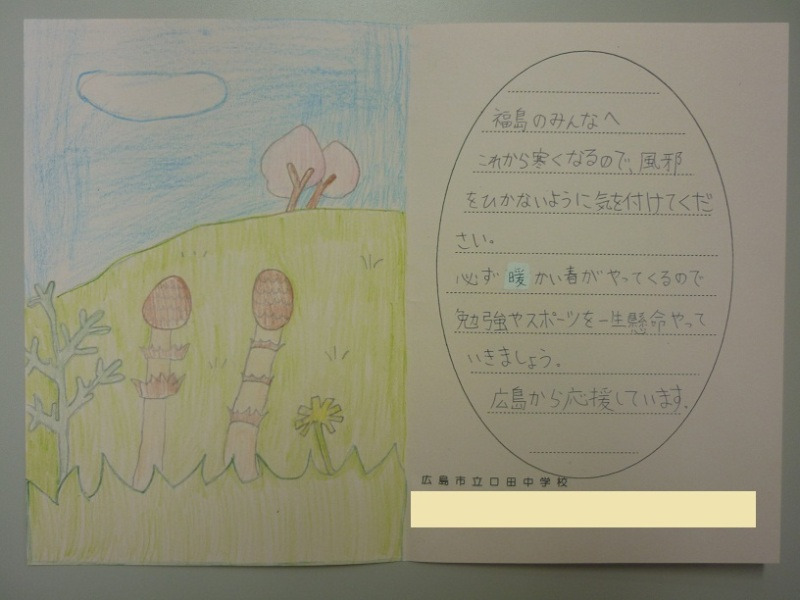 福島のみんなへ
これから寒くなるので、風邪
をひかないように気を付けてくだ
さい。
必ず暖かい春がやってくるので
勉強やスポーツを一生懸命やって
いきましょう。
広島から応援しています。
広島市立口田中学校